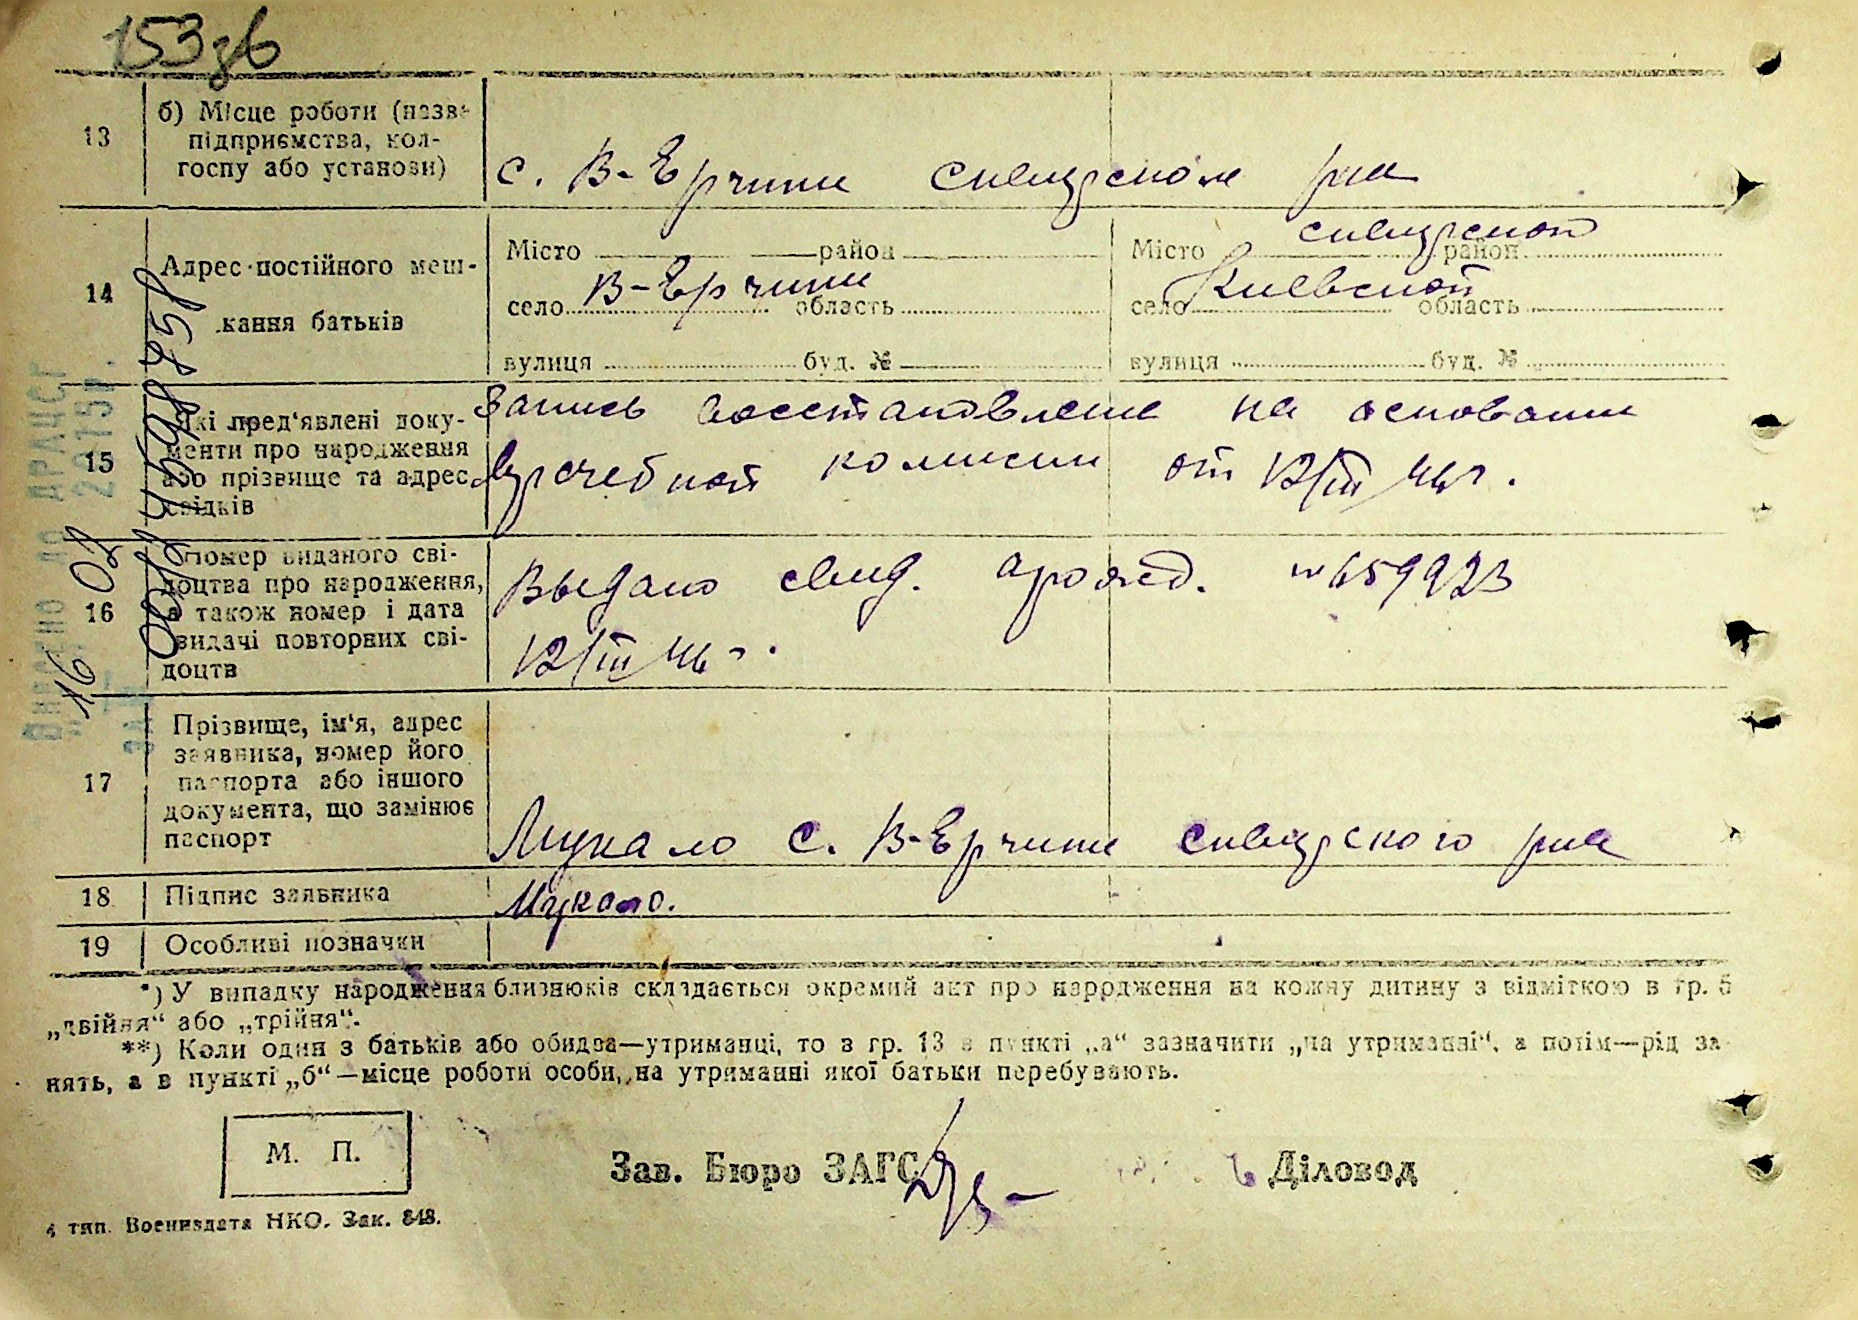 153зв
13
б) Місце роботи (назва
підприємства, кол-
госпу або установи)
с. В-Ерчики сквирском р-не
14
Адрес постійного меш-
кання батьків
Місто район
село В-Ерчики область
вулиця буд. №
Місто сквирской район
село Киевской область
вулиця буд. №
15
Які пред'явлені доку-
менти про народження
або прізвище та адрес
свідків
Запись восстановлена на основании
врачебной комисии от 12/III 46 г.
16
Номер виданого сві-
доцтва про народження,
а також номер і дата
видачі повторних сві-
доцтв
Выдано свид. рожд. №659923
12/III 46 г.
17
Прізвище, ім'я, адрес
заявника, номер його
паспорта або іншого
документа, що замінює
паспорт
Мукало с. В-Ерчики сквирского р-на
18
Підпис заявника
Мукало.
19
Особливі позначки
*) У випадку народження близнюків складається окремий акт про народження на кожну дитину з відміткою в гр. 5
„двійня“ або „трійня“.
**) Коли один з батьків або обидва—утриманці, то в гр. 13 в пункті „а“ зазначити „на утриманні“, а потім—рід за-
нять, а в пункті „б“—місце роботи особи, на утриманні якої батьки перебувають.
М. П.
Зав. Бюро ЗАГС
Діловод
4 тип. Воениздата НКО. Зак. 848.